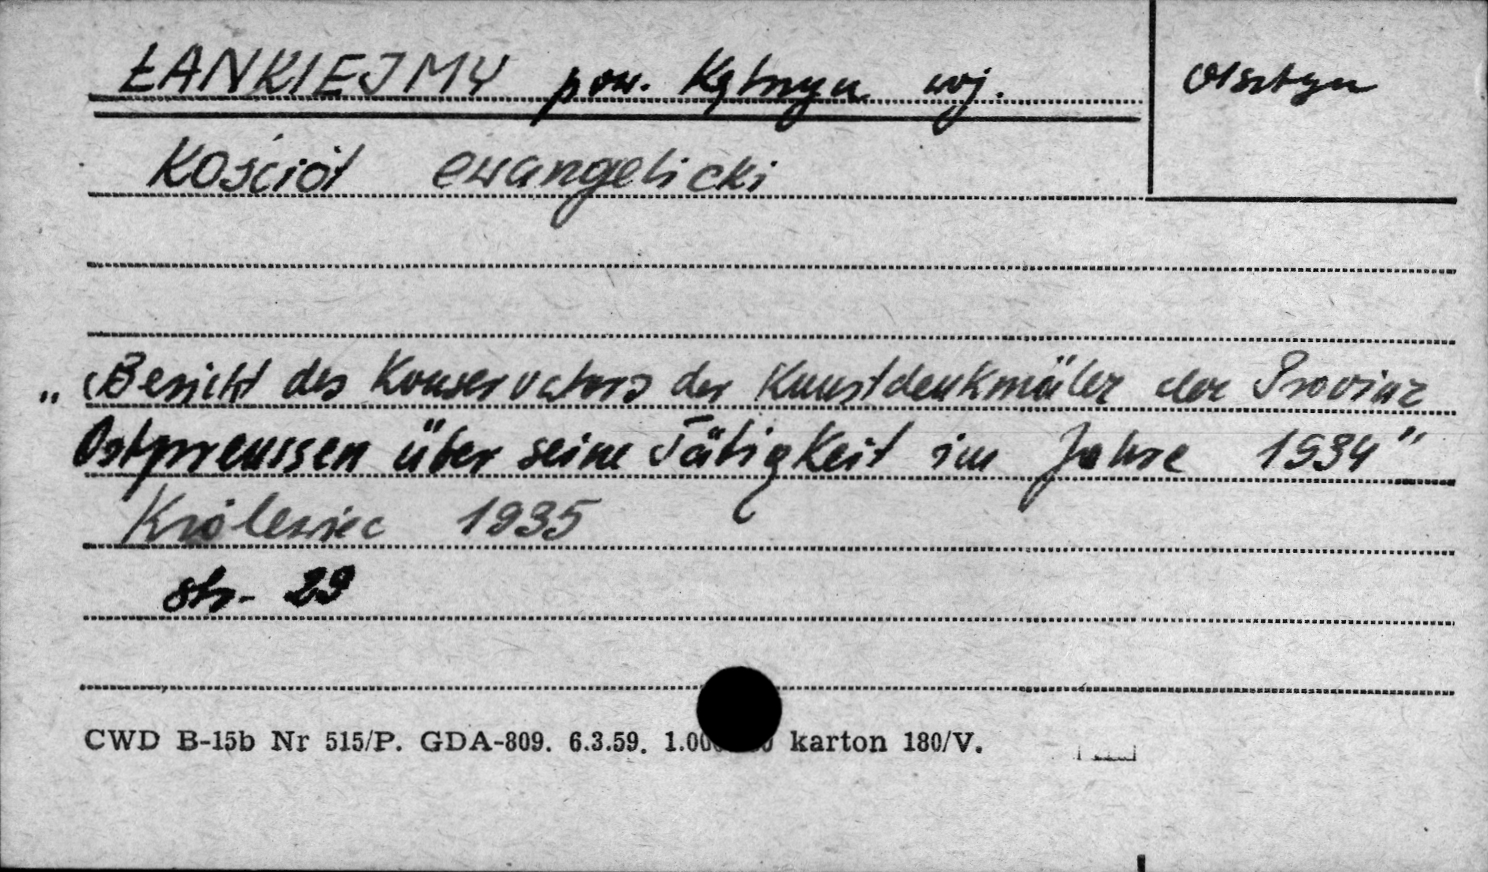 ŁANKIEJMY pow. Kętrzyn woj. Olsztyn
Kościół ewangelicki
„Bericht des Konservators der Kunstdenkmäler der Provinz
Ostpreussen über seine Tätigkeit im Jahre 1934"
Królewiec 1935
str. 29
CWD B-15b Nr 515/P. GDA-809. 6.3.59. karton 180/V.